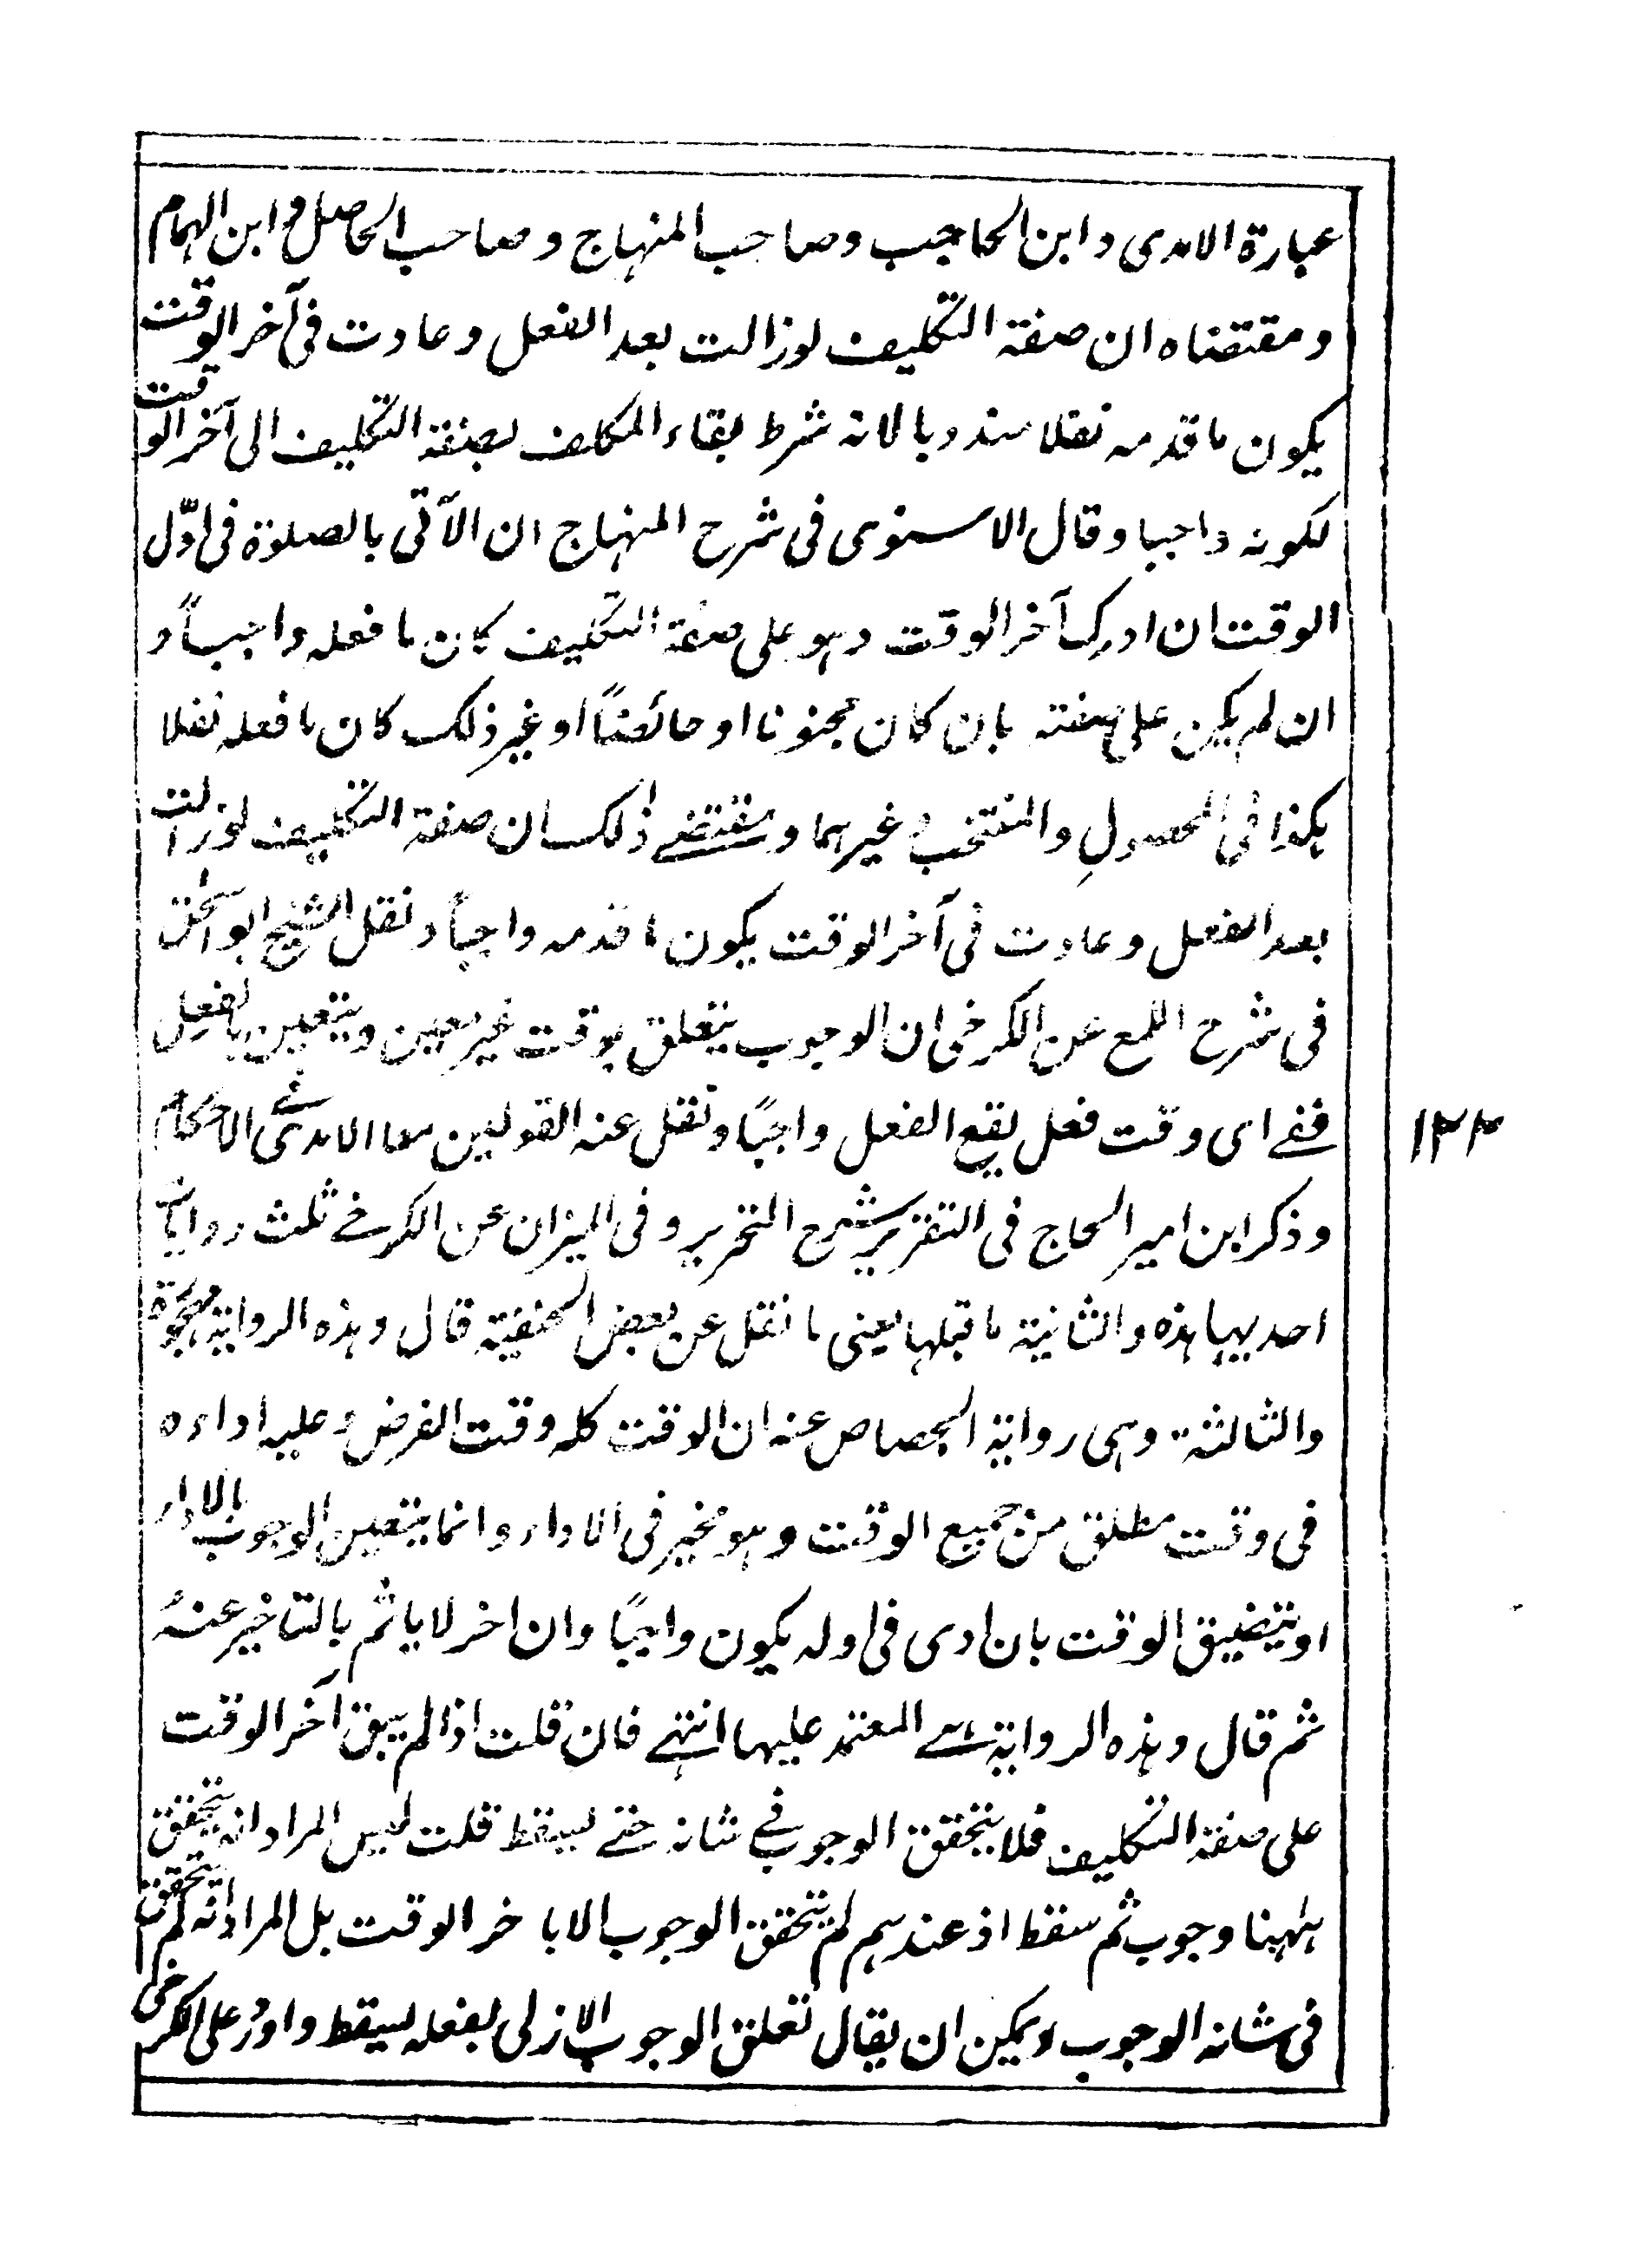 عبارة الامدى و ابن الحاجب وصاحب المنهاج و صاحب الحاصل و ابن الهمام
و مقتضاه ان صفة التكليف لو زالت بعد الفعل و عادت فى آخر الوقت
يكون ما قدمه نفلا مندوبا لانه شرط بقاء المكلف بصفة التكليف الى آخر الوقت
لكونه واجبا و قال الاسنوى فى شرح المنهاج ان الآتى بالصلوة فى اوّل
الوقت ان ادرك آخر الوقت و هو على صفة التكليف كان ما فعله واجباً و
ان لم يكن على صفته بان كان مجنونا او حائضاً او غير ذلك كان ما فعله نفلا
هكذا فى المحصول و المنتخب و غيرهما و مقتضے ذلك ان صفة التكليف لو زالت
بعد الفعل و عادت فى آخر الوقت يكون ما قدمه واجباً و نقل الشيخ ابو اسحٰق
فى شرح اللمع عن الكرخى ان الوجوب يتعلق بوقت غير معين و يتعين بالفعل
ففے اى وقت فعل يقع الفعل واجبًا و نقل عنه القولين معا الامدى فے الاحكام
و ذكر ابن امير الحاج فى التقرير شرح التحرير و فى الميزان عن الكرخے ثلث روايات
احديها هذه و الثانية ما قبلها يعنى ما نقل عن بعض الحنفية قال و هذه الرواية مهجورة
والثالثة و هى رواية الجصاص عنه ان الوقت كله وقت الفرض و عليه اداءه
فى وقت مطلق من جميع الوقت و هو مخير فى الاداء و انما يتعين الوجوب بالاداء
او بتضييق الوقت بان ادى فى اوله يكون واجبًا و ان اخر لا ياثم بالتاخير عنهُ
ثم قال و هذه الرواية هے المعتمد عليها انتهے فان قلت اذا لم يبق آخر الوقت
على صفة التكليف فلا يتحقق الوجوب فے شانه حتے يسقط قلت ليس المراد انه يتحقق
ههنا وجوب ثم سقط اذ عندهم لم يتحقق الوجوب الا باخر الوقت بل المراد انه لم يتحقق
فى شانه الوجوب و يمكن ان يقال تعلق الوجوب الازلى بفعله ليسقط و اورد على الكرخى
١٢٢